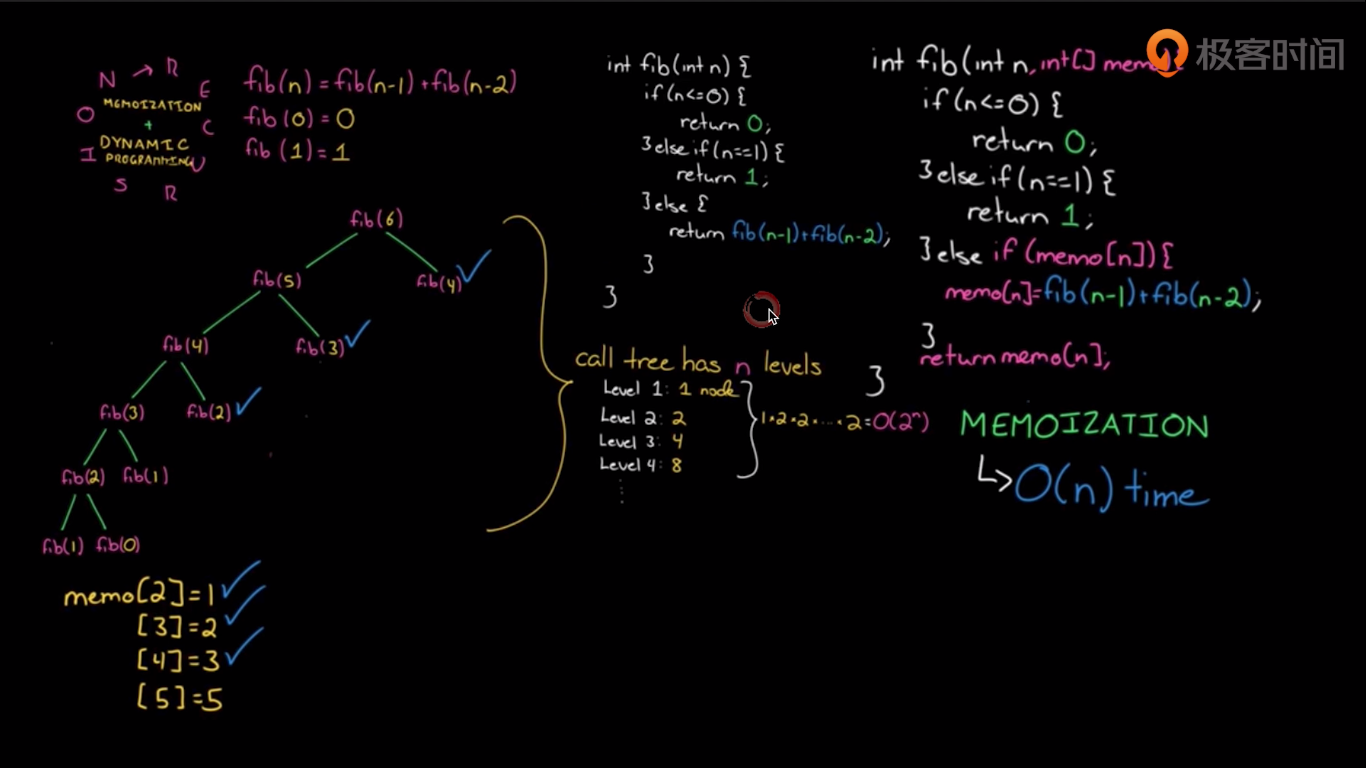 极客时间
N → R
E
MEMOIZATION
O
+
C
DYNAMIC
I PROGRAMMING U
S R
fib(n) = fib(n-1) + fib(n-2)
fib(0) = 0
fib(1) = 1
fib(6)
fib(5) fib(4)
fib(4) fib(3)
fib(3) fib(2)
fib(2) fib(1)
fib(1) fib(0)
memo[2]=1
[3]=2
[4]=3
[5]=5
int fib(int n) {
if (n<=0) {
return 0;
}else if (n==1) {
return 1;
}else {
return fib(n-1)+fib(n-2);
}
}
call tree has n levels
Level 1: 1 node
Level 2: 2
Level 3: 4
Level 4: 8
1*2*2*...*2=O(2ⁿ)
int fib(int n, int[] memo) {
if (n<=0) {
return 0;
}else if (n==1) {
return 1;
}else if (memo[n]) {
memo[n]=fib(n-1)+fib(n-2);
}
return memo[n];
}
MEMOIZATION
↳ O(n) time